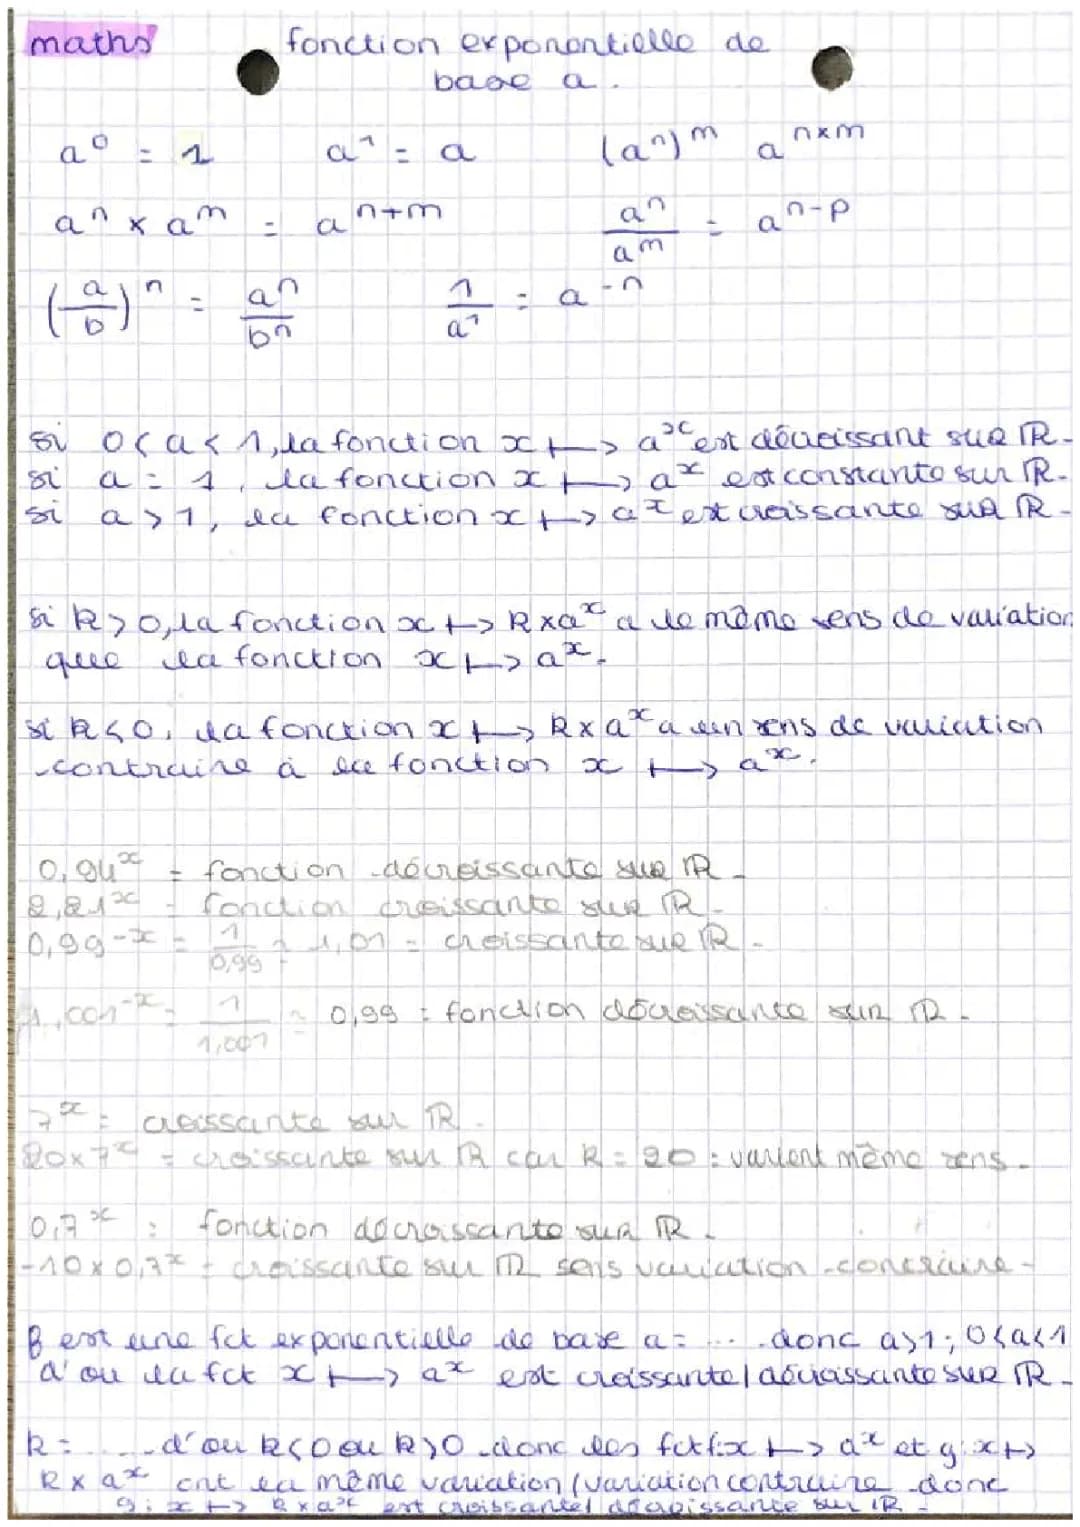 maths fonction exponentielle de
base a.
a⁰ = 1 a¹ = a (aⁿ)ᵐ a^{n×m}
aⁿ × aᵐ = a^{n+m} aⁿ/aᵐ = a^{n-p}
(a/b)ⁿ = aⁿ/bⁿ 1/a¹ = a^{-n}
si 0<a<1, la fonction x ↦ aˣ est décroissant sur ℝ.
si a = 1, la fonction x ↦ aˣ est constante sur ℝ.
si a > 1, la fonction x ↦ aˣ est croissante sur ℝ.
si k > 0, la fonction x ↦ k×aˣ a le même sens de variation
que la fonction x ↦ aˣ.
si k < 0, la fonction x ↦ k×aˣ a un sens de variation
contraire à la fonction x ↦ aˣ.
0,94ˣ = fonction décroissante sur ℝ.
2,21ˣ = fonction croissante sur ℝ.
0,99^{-x} = 1/0,99 ≈ 1,01 = croissante sur ℝ.
1,001^{-x} = 1/1,001 ≈ 0,99 : fonction décroissante sur ℝ.
7ˣ = croissante sur ℝ.
20×7ˣ = croissante sur ℝ car k = 20 : varient même sens.
0,7ˣ : fonction décroissante sur ℝ.
-10×0,7ˣ = croissante sur ℝ sens variation contraire.
f est une fct exponentielle de base a = ... donc a>1 ; 0<a<1
d'où la fct x ↦ aˣ est croissante/décroissante sur ℝ.
k = ..... d'où k<0 ou k>0 donc les fct f:x ↦ aˣ et g:x ↦
k×aˣ ont la même variation/variation contraire donc
g: x ↦ k×aˣ est croissante/décroissante sur ℝ.